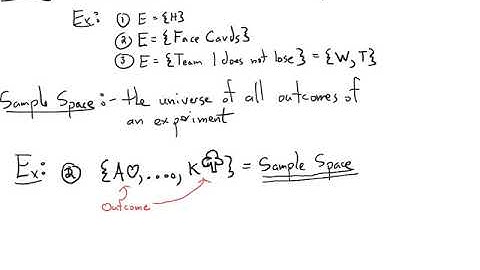 Ex: ① E = {H}
② E = {Face Cards}
③ E = {Team 1 does not lose} = {W, T}
Sample Space: - the universe of all outcomes of
an expriment
Ex: ② {A♡, ...., K♧} = Sample Space
Outcome